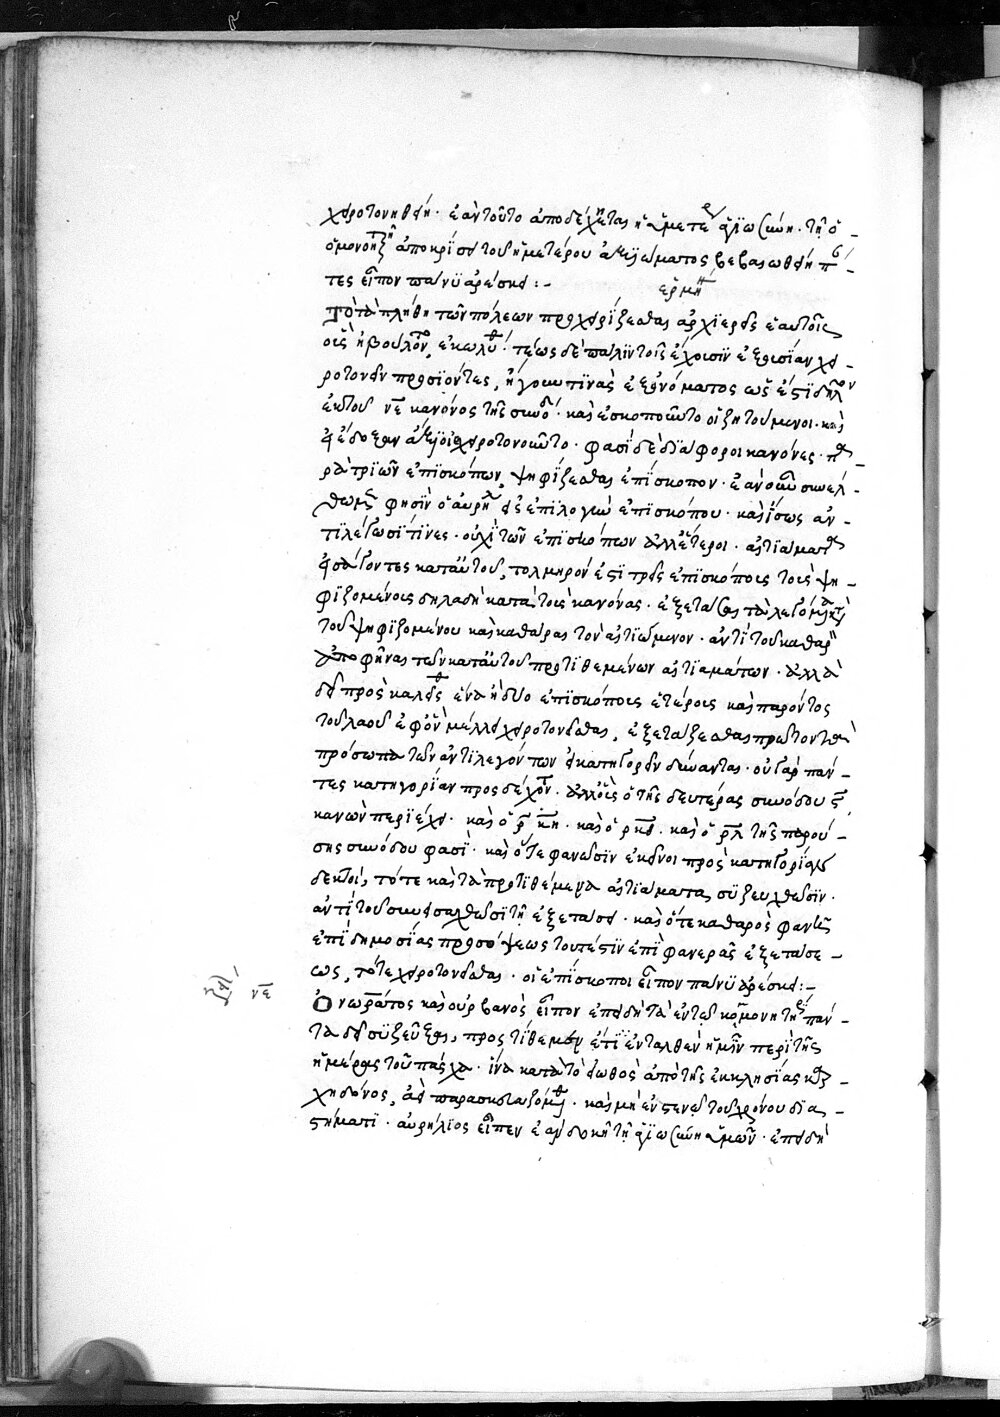 χειροτονηθείη· ἐὰν τοῦτο ἀποδέχηται ἡ ὑμετέρα ἁγιωσύνη· τῇ ὁ-
ὁμονοητικῇ ἀποκρίσει τοῦ ἡμετέρου ἀξιώματος βεβαιωθείη πάν-
τες εἶπον πάνυ ἀρέσκει:-
ἑρμη
Τὸ τὰ πλήθη τῶν πόλεων προχειρίζεσθαι ἀρχιερεῖς ἑαυτοῖς
οἷς ἠβούλοντο, ἐκωλύθη· τέως δὲ πάλιν τοῖς ἔχουσιν ἐξουσίαν χει-
ροτονεῖν προσιόντες, ᾐτοῦντο τινὰς ἐξ ὀνόματος ὥς ἐστι δῆλον
ἐκ τοῦ νε κανόνος τῆς συνόδου· καὶ ἐσκοποῦντο οἱ ζητούμενοι· καὶ
εἰ ἔδοξαν ἄξιοι ἐχειροτονοῦντο· φασὶ δὲ διάφοροι κανόνες· πα-
ρὰ τριῶν ἐπισκόπων, ψηφίζεσθαι ἐπίσκοπον· ἐὰν οὖν συνέλ-
θωμεν φησὶν ὁ αὐρήλιος εἰς ἐπιλογὴν ἐπισκόπου· καὶ ἴσως ἀν-
τιλέγωσί τινες· οὐχὶ τῶν ἐπισκόπων ἀλλ' ἕτεροι· αἰτιάματα
εἰσάγοντες κατ' αὐτοῦ, τολμηρόν ἐστι τρεῖς ἐπισκόποις τοῖς ψη-
φιζομένοις δηλαδὴ κατὰ τοὺς κανόνας· ἐξετάσαι τὰ λεγόμενα κατὰ
τοῦ ψηφιζομένου καὶ καθᾶραι τὸν αἰτιώμενον· ἀντὶ τοῦ καθαρὸν
ἀποφῆναι τῶν κατ' αὐτοῦ προτιθεμένων αἰτιαμάτων· ἀλλὰ
δεῖ προσκαλεῖσθαι ἕνα ἢ δύο ἐπισκόπους ἑτέρους καὶ παρόντος
τοῦ λαοῦ ἐφ' ὃν μέλλει χειροτονεῖσθαι, ἐξετάζεσθαι πρῶτον τὰ
πρόσωπα τῶν ἀντιλεγόντων εἰ κατηγορεῖν δύνανται· οὐ γὰρ πάν-
τες κατηγορίαν προσδέχονται· ἀλλ' οἷς ὁ τῆς δευτέρας συνόδου ϛ
κανὼν περιέχει· καὶ ὁ ρκη· καὶ ὁ ρκθ· καὶ ὁ ρλ τῆς παρού-
σης συνόδου φασί· καὶ ὅτε φανῶσιν ἐκεῖνοι πρὸς κατηγορίαν
δεκτοί, τότε καὶ τὰ προτιθέμενα αἰτιάματα, συζευχθῶσιν·
ἀντὶ τοῦ συνεισαχθῶσι τῇ ἐξετάσει· καὶ ὅτε καθαρὸς φανῇ
ἐπὶ δημοσίας προσόψεως τουτέστιν ἐπὶ φανερᾶς ἐξετάσε-
ως, τότε χειροτονεῖσθαι· οἱ ἐπίσκοποι εἶπον πάνυ ἀρέσκει:-
νε Ὁνωρᾶτος καὶ οὐρβανὸς εἶπον ἐπειδὴ τὰ ἐν τῷ κομμονητωρίῳ πάν-
τα δεῖ συζεῦξαι, προστίθεμεν ἔτι ἐνταλθὲν ἡμῖν περὶ τῆς
ἡμέρας τοῦ πάσχα· ἵνα κατὰ τὸ ἔθος ἀπὸ τῆς ἐκκλησίας καρ-
χηδόνος, ἀεὶ παρασκευαζόμεθα· καὶ μὴ ἐν στενῷ τοῦ χρόνου δια-
στήματι· αὐρήλιος εἶπεν ἐὰν δοκῇ τῇ ἁγιωσύνῃ ὑμῶν· ἐπειδὴ